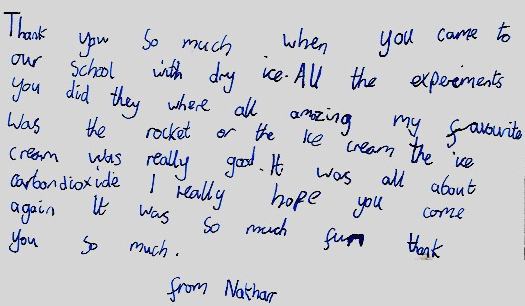 Thank you so much when you came to
our school with dry ice. All the experiments
you did they where all amazing my favourite
was the rocket or the Ice cream the ice
cream was really good. It was all about
carbondioxide I really hope you come
again It was so much fun thank
you so much.
from Nakharr